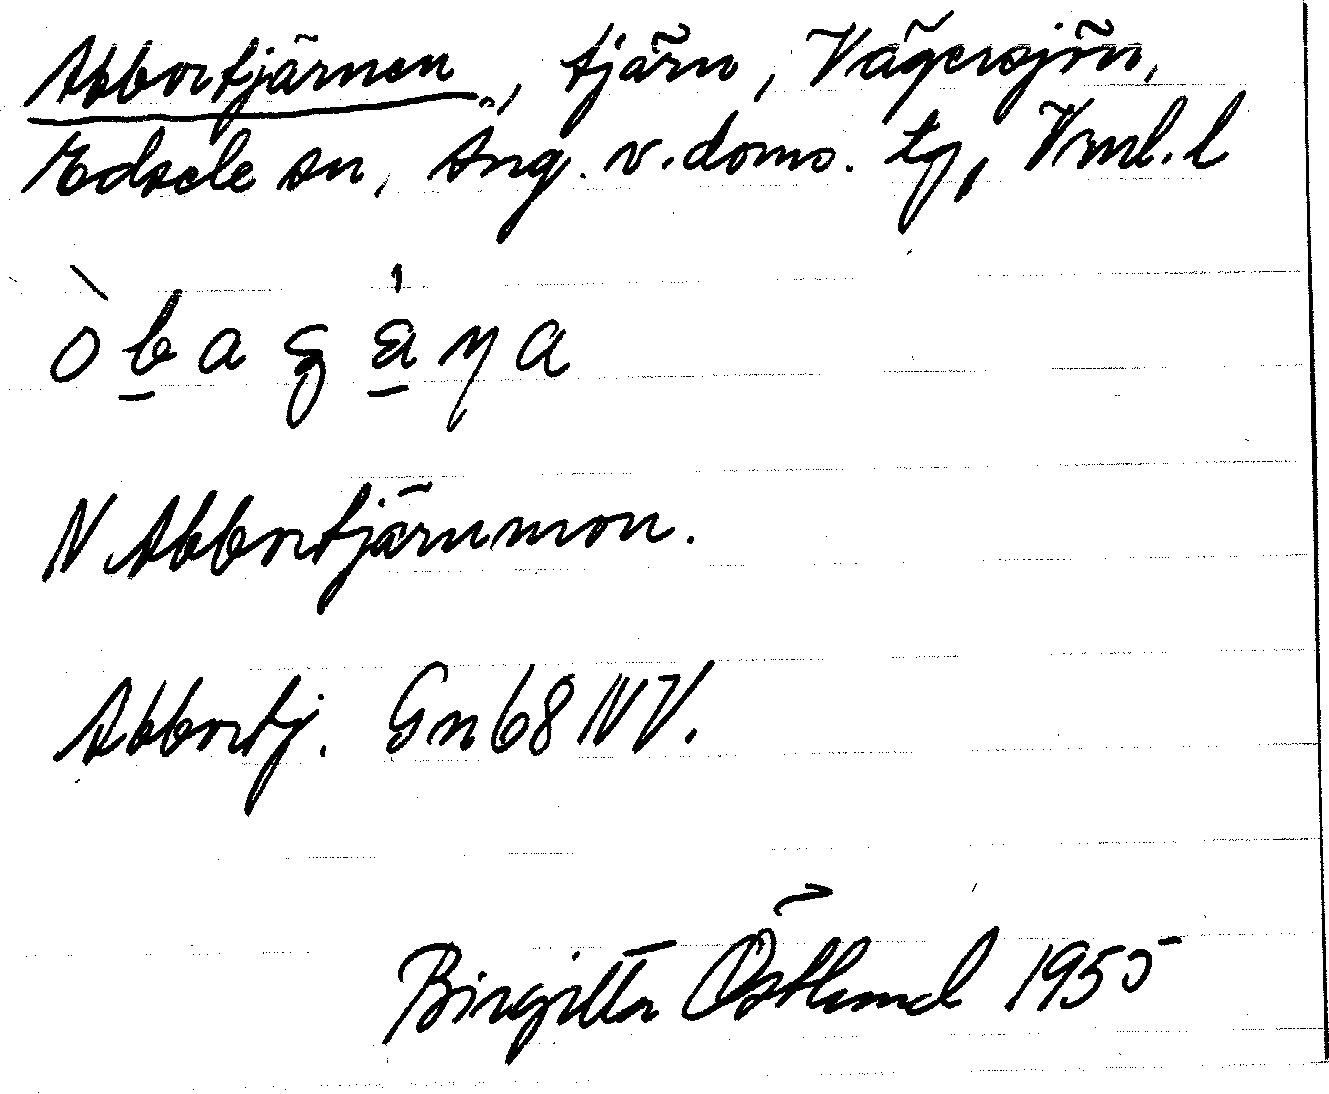 Abbortjärnen, tjärn, Vägersjön,
Edsele sn, Ång. v. doms. tg, Vml. l
N Abbortjärnmon.
Abbortj. Gn 68 NV.
Birgitta Östlund 1955